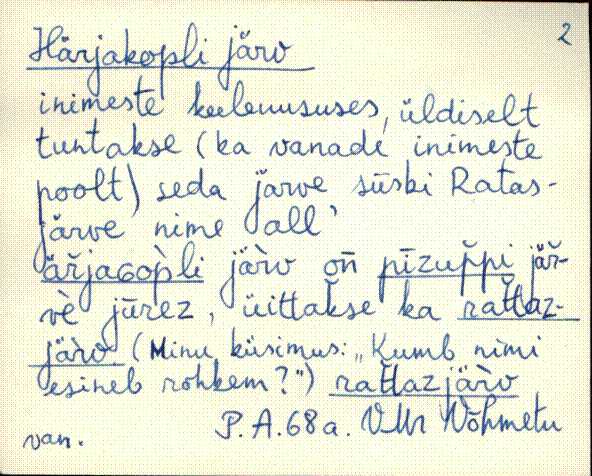 2
Härjakopli järv
inimeste keelemususes, üldiselt
tuntakse (ka vanade inimeste
poolt) seda järve siiski Ratas-
järve nime all'
äŕjaGòp̀li jäŕv o͞n pīzup̆pi jäŕ-
vè jūrez, üittäkse ka rat̆taz-
jär̀v. (Minu küsimus: „Kumb nimi
esineb rohkem?") rat̆tazjär̀v
P.A. 68a. VMr Võhmetu
van.